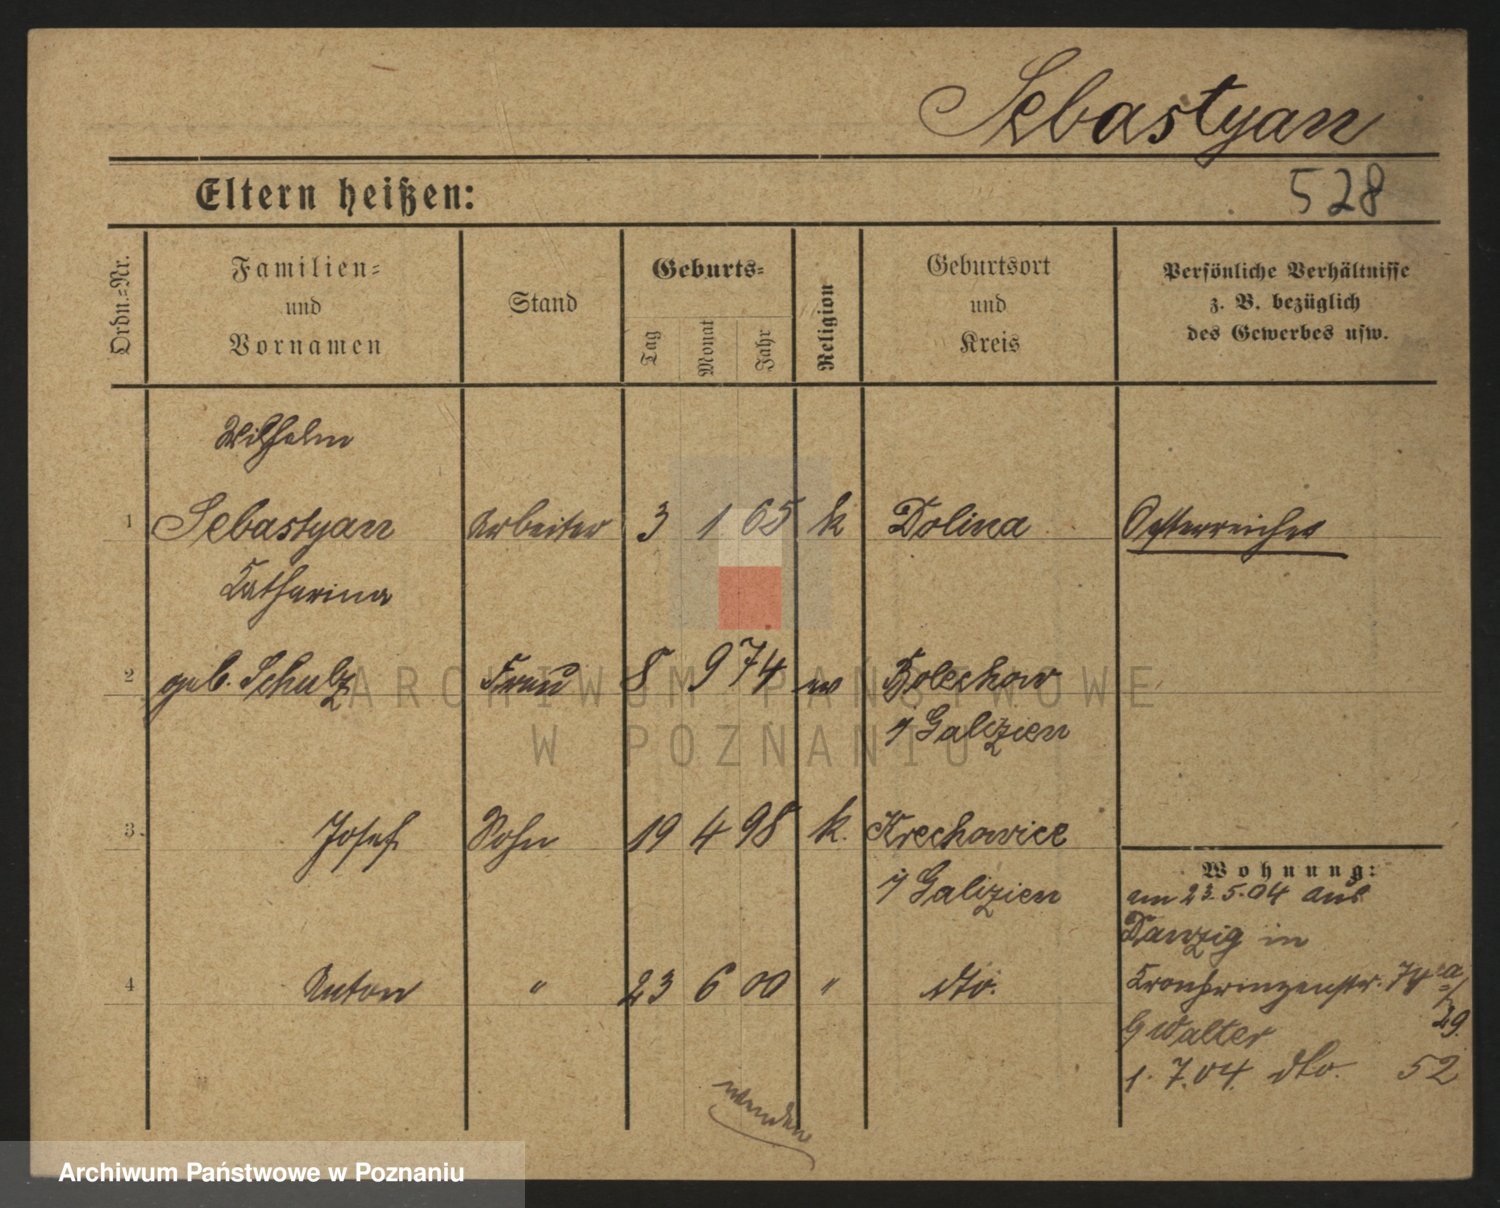 Sebastyan
Eltern heißen:
528
Ordn.=Nr.
Familien=
und
Vornamen
Stand
Geburts=
Tag
Monat
Jahr
Religion
Geburtsort
und
Kreis
Persönliche Verhältnisse
z. B. bezüglich
des Gewerbes usw.
Wilhelm
1 Sebastyan Arbeiter 3 1 65 k Dolina Oesterreicher
Catharina
2 geb. Schulz Frau 8 9 74 Bolechow
i/ Galizien
3. Josef Sohn 19 4 98 k. Krechowice
i/ Galizien
Wohnung:
am 23.5.04 aus
Danzig in
4 Anton " 23 6 00 " dto.
Kronprinzenstr. 78a/
29.
b Walter
1. 7.04. dto. 52
wenden
ARCHIWUM PAŃSTWOWE
W POZNANIU
Archiwum Państwowe w Poznaniu